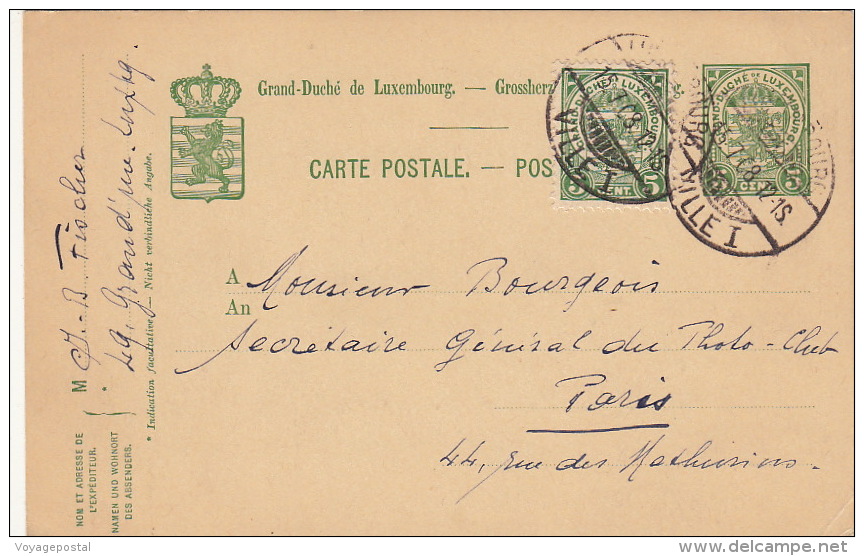 Grand-Duché de Luxembourg. — Grossherz
CARTE POSTALE. — POS
GRAND-DUCHÉ DE LUXEMBOURG.
5 CENT. 5
VILLE I
A Monsieur Bourgeois
An
Secrétaire Général du Photo-Club
Paris
44, rue des Mathurins.
M J.-B. Fischer
49, Grand'rue. Luxbg.
* Indication facultative — Nicht verbindliche Angabe.
NOM ET ADRESSE DE
L'EXPÉDITEUR.
NAMEN UND WOHNORT
DES ABSENDERS.
Voyagepostal
delcampe.net